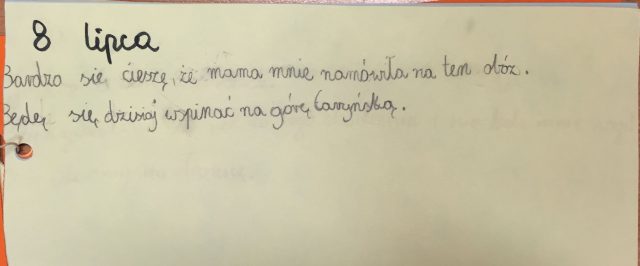 8 lipca
Bardzo się cieszę, że mama mnie namówiła na ten obóz.
Będę się dzisiaj wspinać na górę Caryńską.